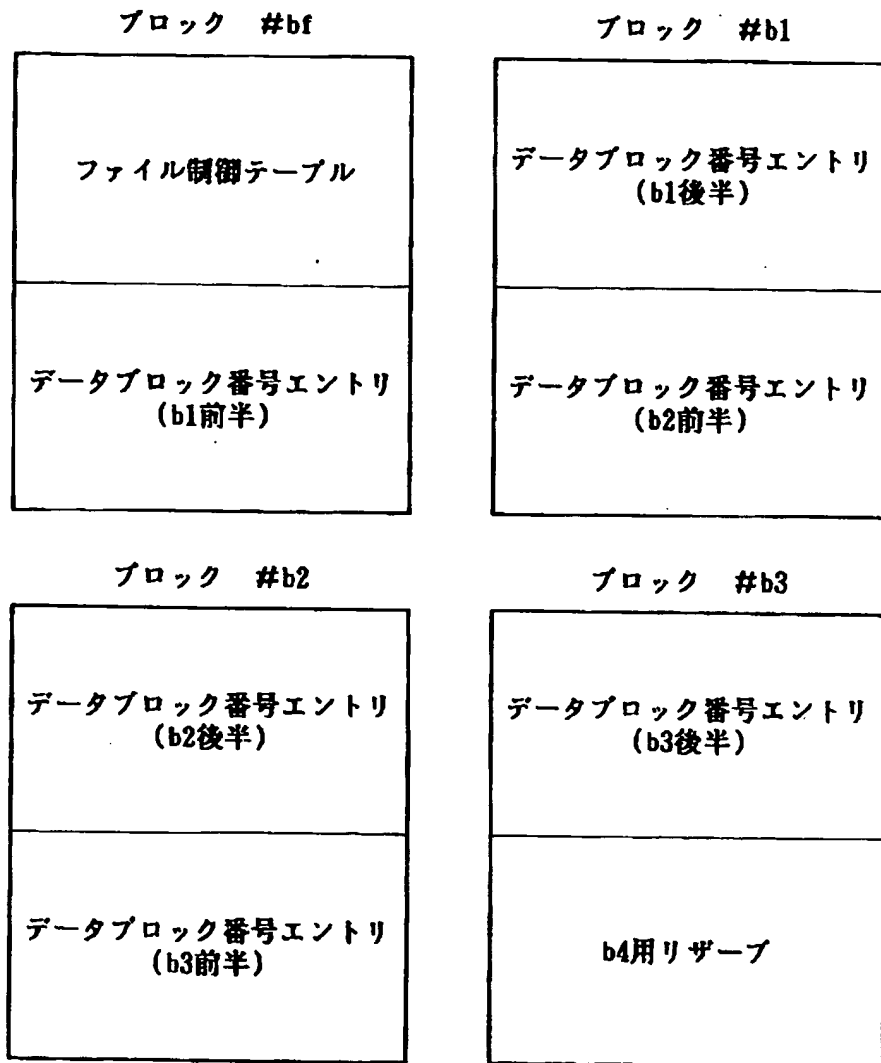 ブロック #bf
ファイル制御テーブル
データブロック番号エントリ
(b1前半)
ブロック #b1
データブロック番号エントリ
(b1後半)
データブロック番号エントリ
(b2前半)
ブロック #b2
データブロック番号エントリ
(b2後半)
データブロック番号エントリ
(b3前半)
ブロック #b3
データブロック番号エントリ
(b3後半)
b4用リザーブ